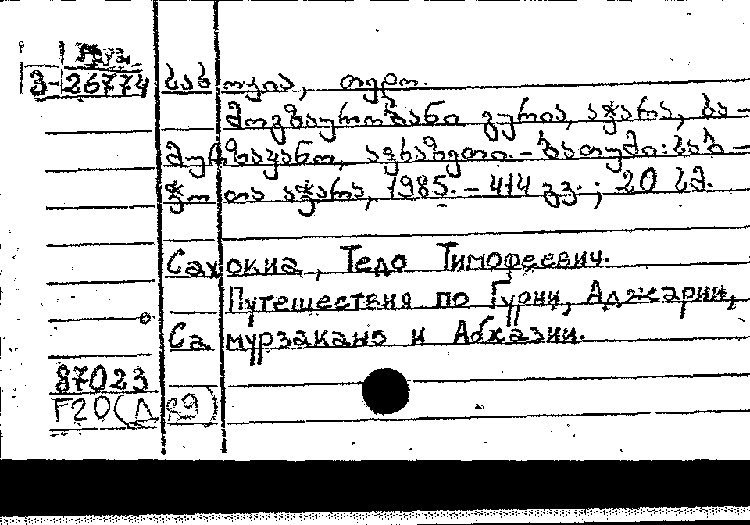 Груз.
3-26774 სახოკია, თედო.
მოგზაურობანი გურია, აჭარა, სა-
მურზაყანო, აფხაზეთი. - ბათუმი: საბ-
ჭოთა აჭარა, 1985. - 414 გვ.; 20 სმ.
Сахокиа, Тедо Тимофеевич.
Путешествия по Гурии, Аджарии,
Самурзакано и Абхазии.
87023
Г20(Л89)